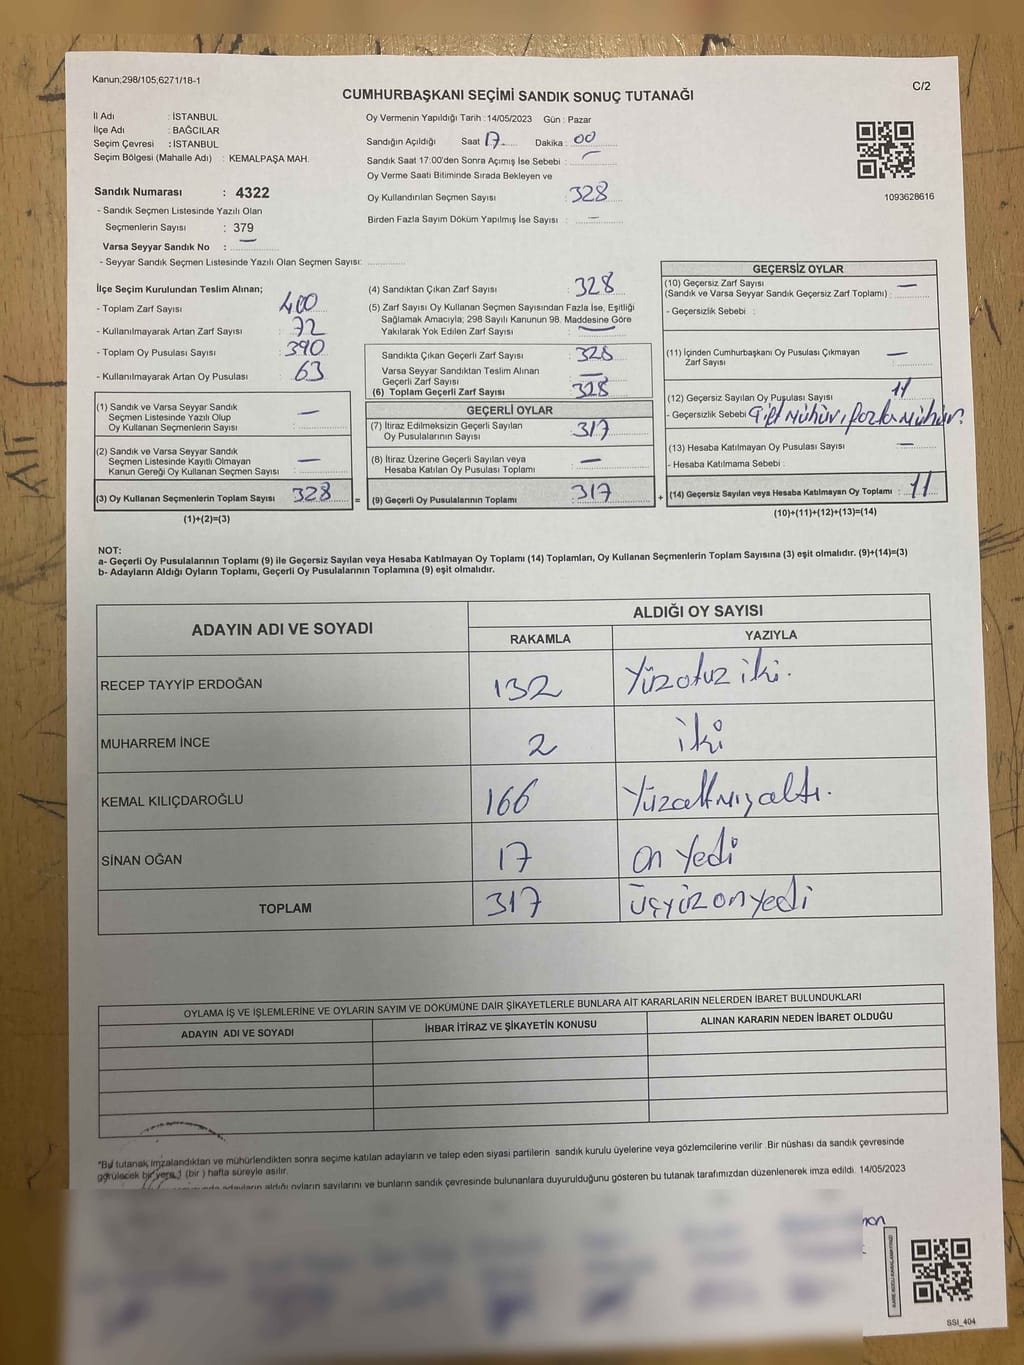 Kanun;298/105;6271/18-1
C/2
CUMHURBAŞKANI SEÇİMİ SANDIK SONUÇ TUTANAĞI
İl Adı : İSTANBUL
İlçe Adı : BAĞCILAR
Seçim Çevresi : İSTANBUL
Seçim Bölgesi (Mahalle Adı) : KEMALPAŞA MAH.
Sandık Numarası : 4322
- Sandık Seçmen Listesinde Yazılı Olan
Seçmenlerin Sayısı : 379
Varsa Seyyar Sandık No : —
- Seyyar Sandık Seçmen Listesinde Yazılı Olan Seçmen Sayısı:
Oy Vermenin Yapıldığı Tarih : 14/05/2023 Gün : Pazar
Sandığın Açıldığı Saat 17 Dakika : 00
Sandık Saat 17:00'den Sonra Açımış İse Sebebi : —
Oy Verme Saati Bitiminde Sırada Bekleyen ve
Oy Kullandırılan Seçmen Sayısı : 328
Birden Fazla Sayım Döküm Yapılmış İse Sayısı : —
1093628616
İlçe Seçim Kurulundan Teslim Alınan;
- Toplam Zarf Sayısı 400
- Kullanılmayarak Artan Zarf Sayısı 72
- Toplam Oy Pusulası Sayısı 390
- Kullanılmayarak Artan Oy Pusulası 63
(1) Sandık ve Varsa Seyyar Sandık
Seçmen Listesinde Yazılı Olup
Oy Kullanan Seçmenlerin Sayısı : —
(2) Sandık ve Varsa Seyyar Sandık
Seçmen Listesinde Kayıtlı Olmayan
Kanun Gereği Oy Kullanan Seçmen Sayısı : —
(3) Oy Kullanan Seçmenlerin Toplam Sayısı : 328
(1)+(2)=(3)
=
(4) Sandıktan Çıkan Zarf Sayısı : 328
(5) Zarf Sayısı Oy Kullanan Seçmen Sayısından Fazla İse, Eşitliği
Sağlamak Amacıyla; 298 Sayılı Kanunun 98. Maddesine Göre
Yakılarak Yok Edilen Zarf Sayısı : —
Sandıkta Çıkan Geçerli Zarf Sayısı : 328
Varsa Seyyar Sandıktan Teslim Alınan
Geçerli Zarf Sayısı : —
(6) Toplam Geçerli Zarf Sayısı : 328
GEÇERLİ OYLAR
(7) İtiraz Edilmeksizin Geçerli Sayılan
Oy Pusulalarının Sayısı : 317
(8) İtiraz Üzerine Geçerli Sayılan veya
Hesaba Katılan Oy Pusulası Toplamı : —
(9) Geçerli Oy Pusulalarının Toplamı : 317
+
GEÇERSİZ OYLAR
(10) Geçersiz Zarf Sayısı —
(Sandık ve Varsa Seyyar Sandık Geçersiz Zarf Toplamı) :
- Geçersizlik Sebebi :
(11) İçinden Cumhurbaşkanı Oy Pusulası Çıkmayan
Zarf Sayısı : —
(12) Geçersiz Sayılan Oy Pusulası Sayısı : 11
- Geçersizlik Sebebi : Çift Mühür, fazla Mühür.
(13) Hesaba Katılmayan Oy Pusulası Sayısı : —
- Hesaba Katılmama Sebebi :
(14) Geçersiz Sayılan veya Hesaba Katılmayan Oy Toplamı : 11
(10)+(11)+(12)+(13)=(14)
NOT:
a- Geçerli Oy Pusulalarının Toplamı (9) ile Geçersiz Sayılan veya Hesaba Katılmayan Oy Toplamı (14) Toplamları, Oy Kullanan Seçmenlerin Toplam Sayısına (3) eşit olmalıdır. (9)+(14)=(3)
b- Adayların Aldığı Oyların Toplamı, Geçerli Oy Pusulalarının Toplamına (9) eşit olmalıdır.
ADAYIN ADI VE SOYADI ALDIĞI OY SAYISI
RAKAMLA YAZIYLA
RECEP TAYYİP ERDOĞAN 132 Yüzotuz iki.
MUHARREM İNCE 2 iki
KEMAL KILIÇDAROĞLU 166 Yüzaltmışaltı.
SİNAN OĞAN 17 on Yedi
TOPLAM 317 üçyüz onyedi
OYLAMA İŞ VE İŞLEMLERİNE VE OYLARIN SAYIM VE DÖKÜMÜNE DAİR ŞİKAYETLERLE BUNLARA AİT KARARLARIN NELERDEN İBARET BULUNDUKLARI
ADAYIN ADI VE SOYADI İHBAR İTİRAZ VE ŞİKAYETİN KONUSU ALINAN KARARIN NEDEN İBARET OLDUĞU
*Bu tutanak imzalandıktan ve mühürlendikten sonra seçime katılan adayların ve talep eden siyasi partilerin sandık kurulu üyelerine veya gözlemcilerine verilir .Bir nüshası da sandık çevresinde
görülecek bir yere 1 (bir ) hafta süreyle asılır.
adayların aldığı oyların sayılarını ve bunların sandık çevresinde bulunanlara duyurulduğunu gösteren bu tutanak tarafımızdan düzenlenerek imza edildi. 14/05/2023
SSI_404